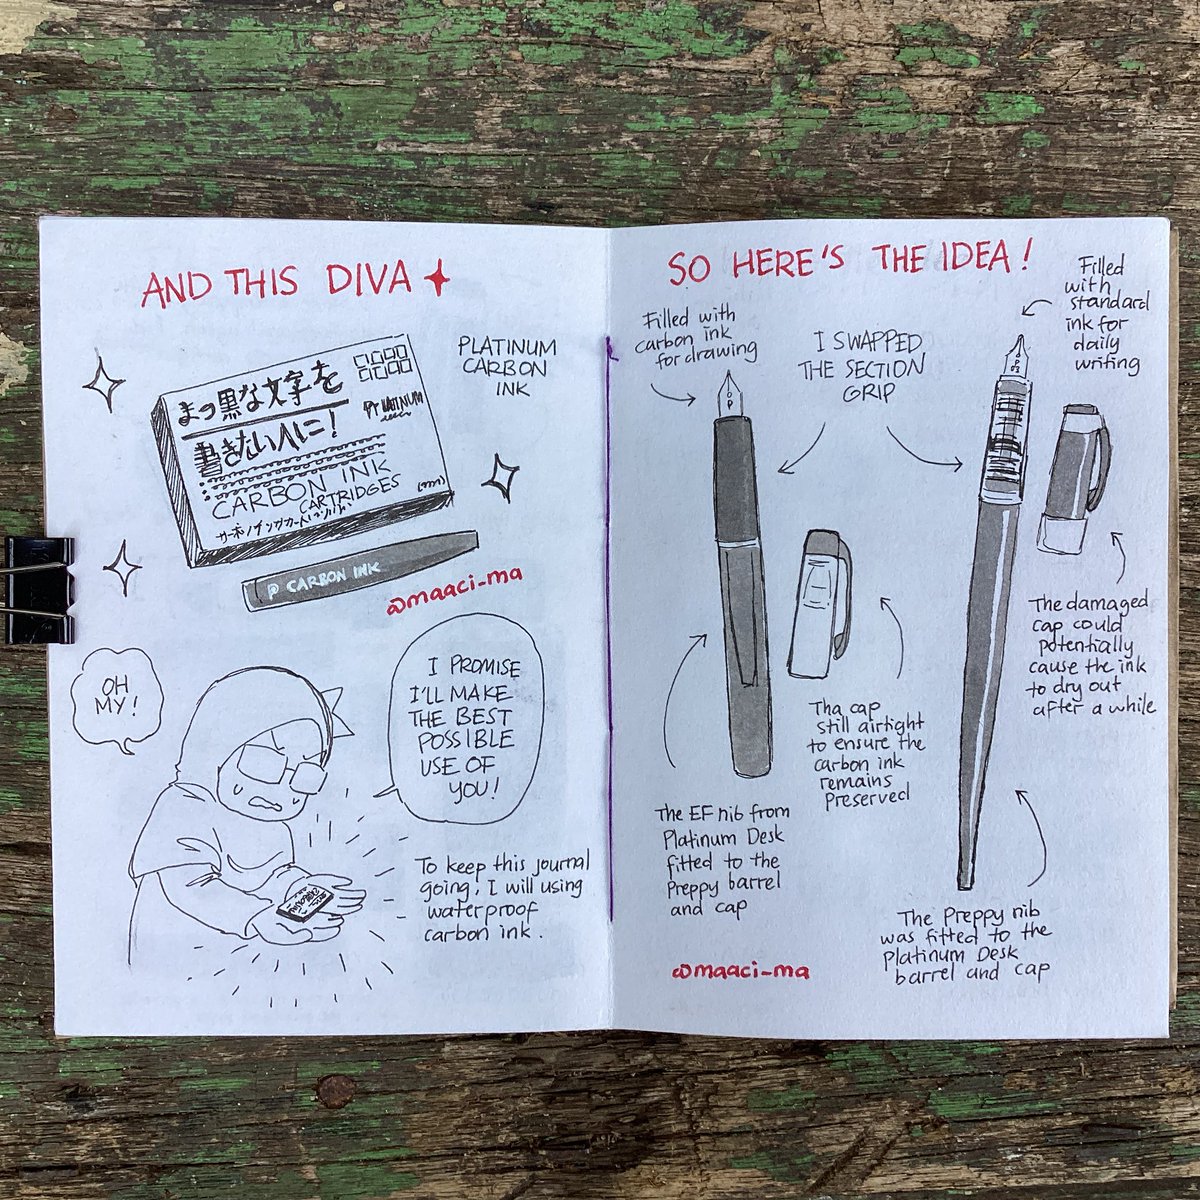 AND THIS DIVA
PLATINUM
CARBON
INK
まっ黒な文字を
書きたい人に!
PLATINUM
CARBON INK
CARTRIDGES
P CARBON INK
@maaci-ma
OH
MY!
I PROMISE
I'LL MAKE
THE BEST
POSSIBLE
USE OF
YOU!
To keep this journal
going, I will using
waterproof
carbon ink.
SO HERE'S THE IDEA!
Filled with
carbon ink
for drawing
I SWAPPED
THE SECTION
GRIP
Filled
with
standard
ink for
daily
writing
Tha cap
still airtight
to ensure the
carbon ink
remains
preserved
The damaged
cap could
potentially
cause the ink
to dry out
after a while
The EF nib from
Platinum Desk
fitted to the
Preppy barrel
and cap
The Preppy nib
was fitted to the
Platinum Desk
barrel and cap
@maaci-ma